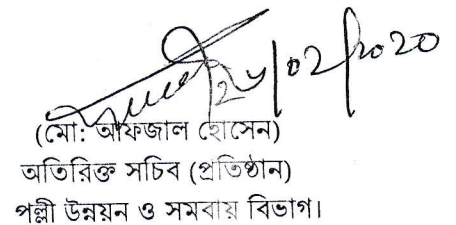 /02/2020
(মো: আফজাল হোসেন)
অতিরিক্ত সচিব (প্রতিষ্ঠান)
পল্লী উন্নয়ন ও সমবায় বিভাগ।